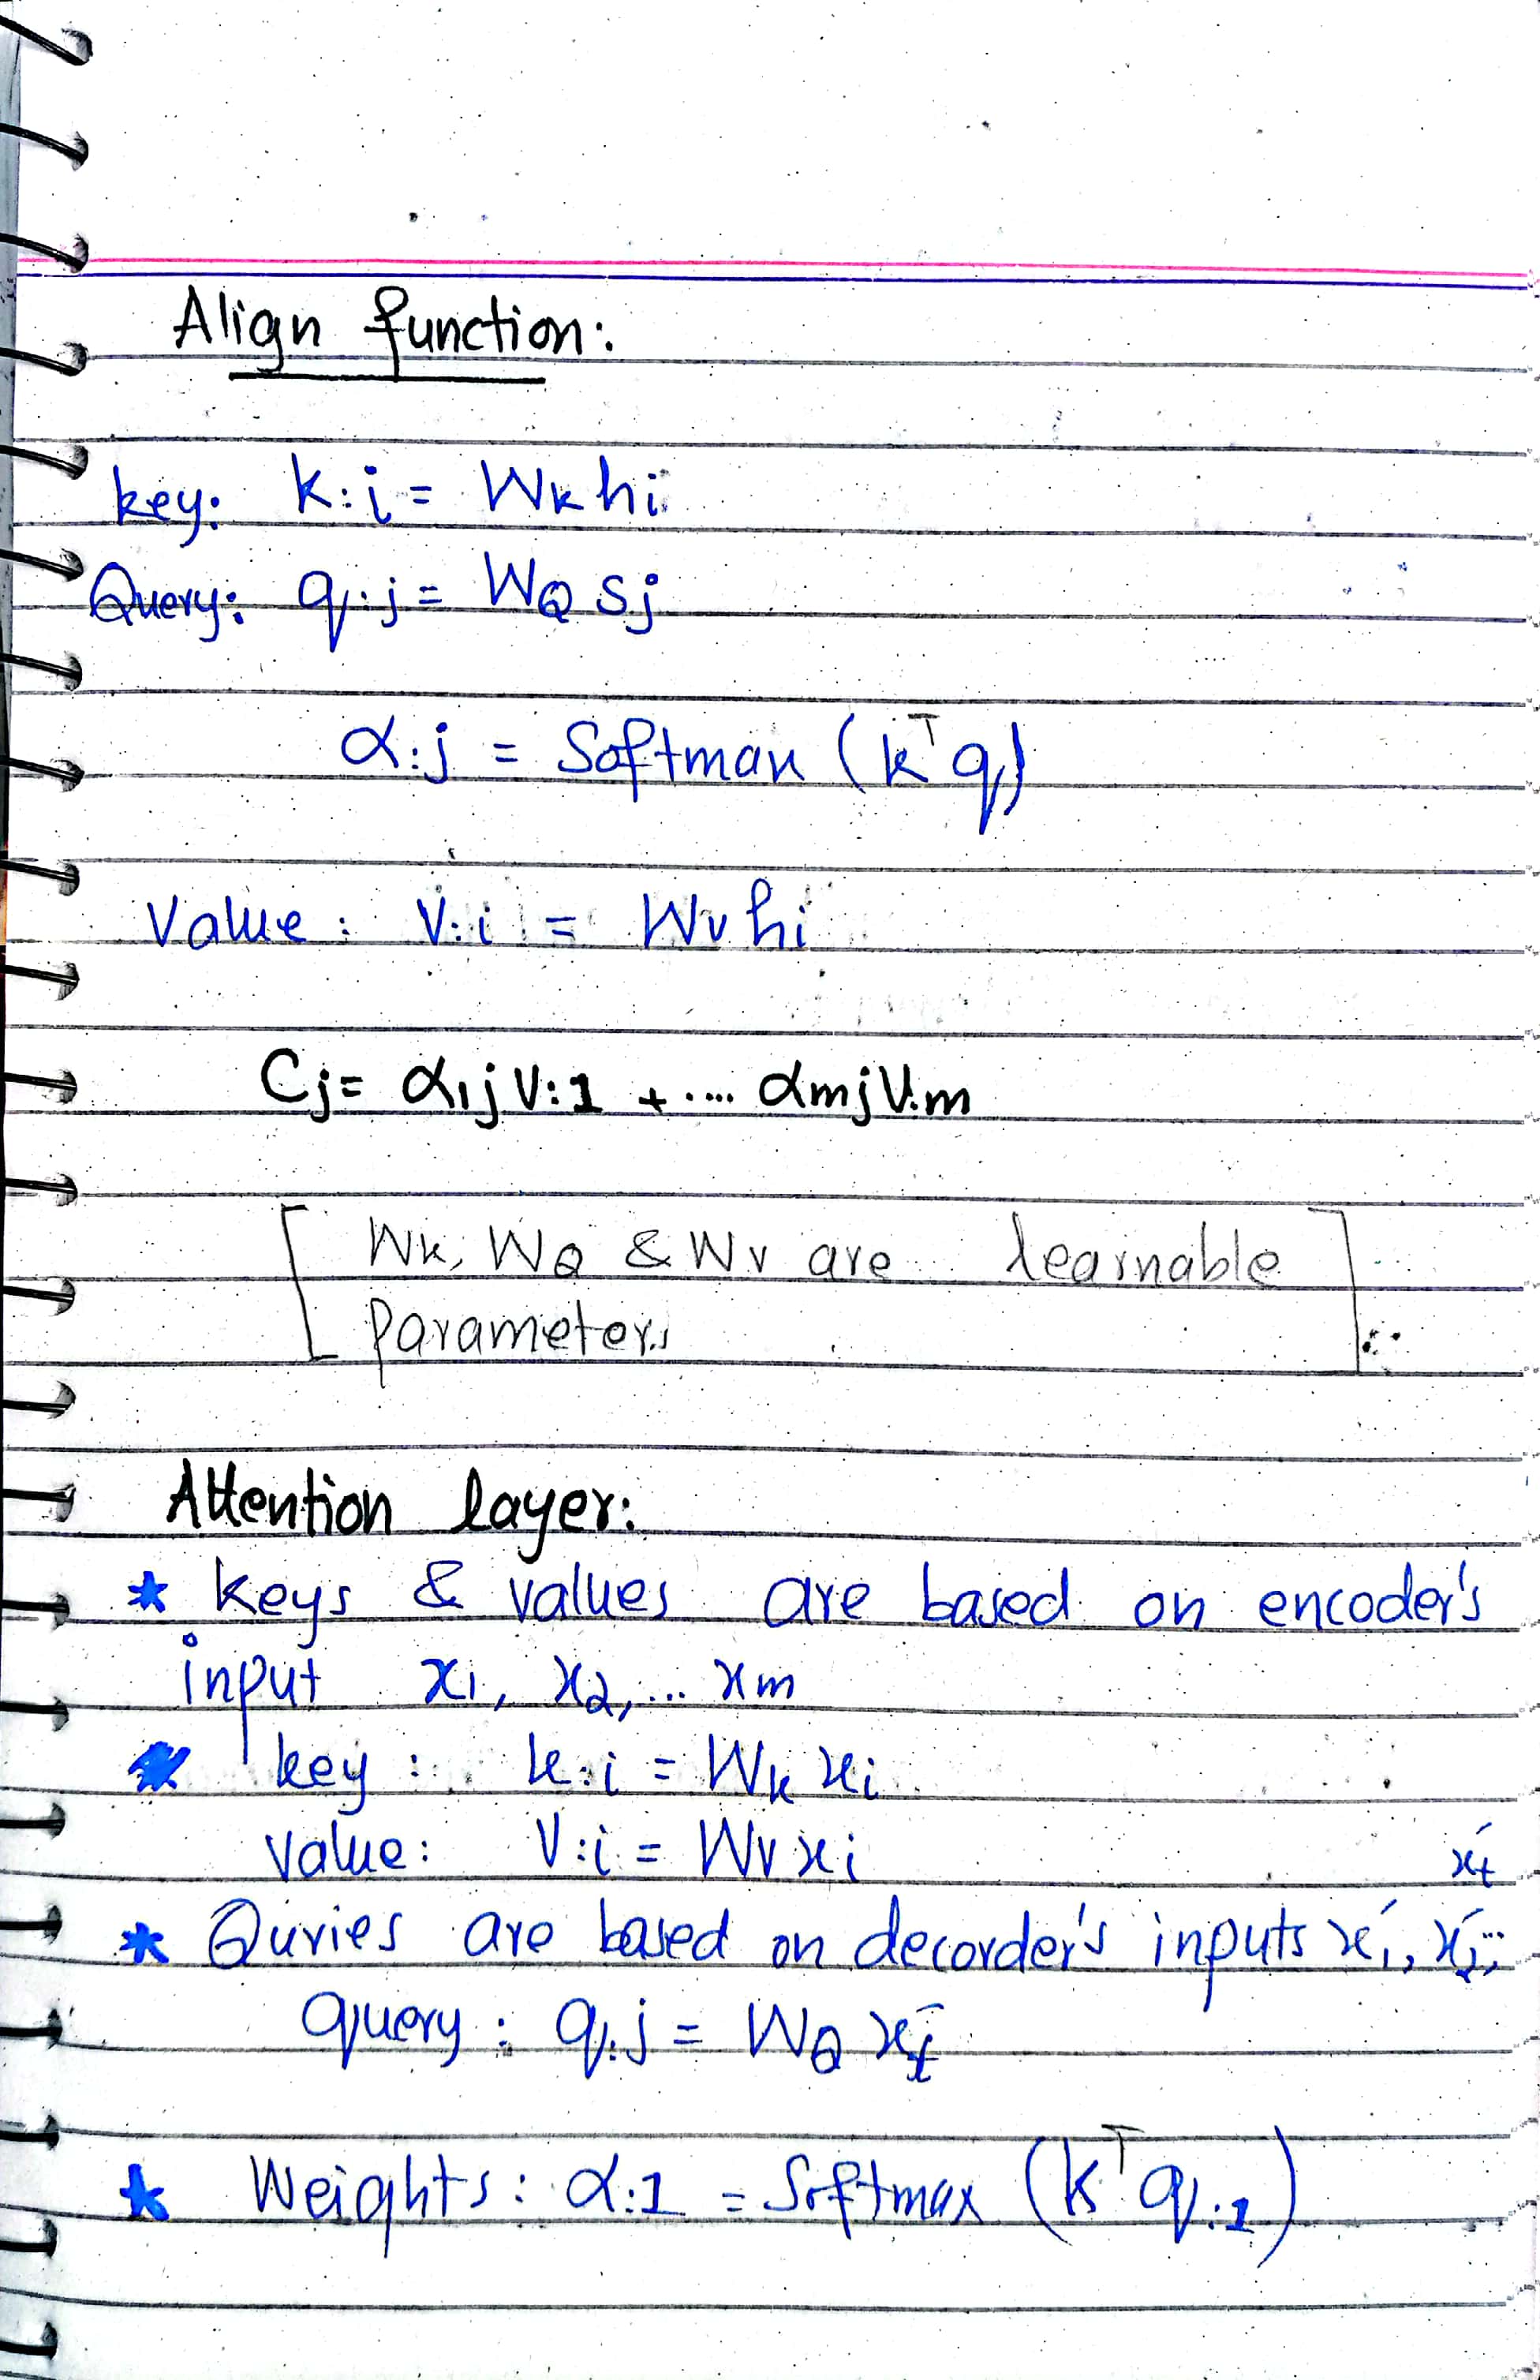 Align function:
key: k:i = Wk hi
Query: q:j = WQ Sj
α:j = Softmax (kᵀq)
Value: V:i = Wv hi
Cj = α1j V:1 + .... αmj V:m
[ Wk, WQ & Wv are learnable
parameters ]
Attention layer:
* keys & values are based on encoder's
input x1, x2, ... xm
key: k:i = Wk xi
value: V:i = Wv xi
x't
* Quries are based on decorder's inputs x'1, x'2, ...
query: q:j = WQ x'j
* Weights: α:1 = Softmax (kᵀ q:1)